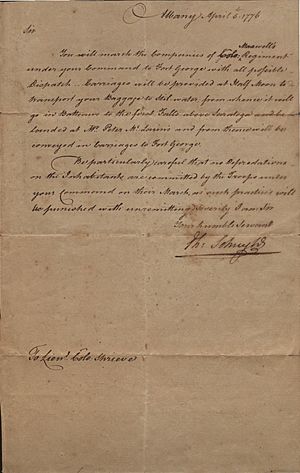 Albany April 6. 1776
Sir
Maxwell's
You will march the Companies of Colo. Regiment
under your Command to Fort George with all possible
Dispatch. Carriages will be provided at Half Moon to
transport your Baggage to Still water from whence it will
go in Batteaus to the first Falls above Saratoga and be
Landed at Mr. Peter and from thence will be
conveyed in Carriages to Fort George.
Be particularly careful that no Depredations
on the Inhabitants are committed by the Troops under
your Command on their March, as such practices will
be punished with unremitting severity I am Sir
Your humble Servant
Ph: Schuyler
To Lieut. Colo. Shreeve